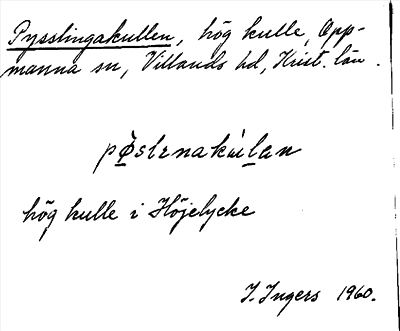 Pysslingakullen, hög kulle, Opp-
manna sn, Villands hd, Krist. län.
pø̀slɪnakùlan
hög kulle i Höjelycke
I. Ingers 1960.